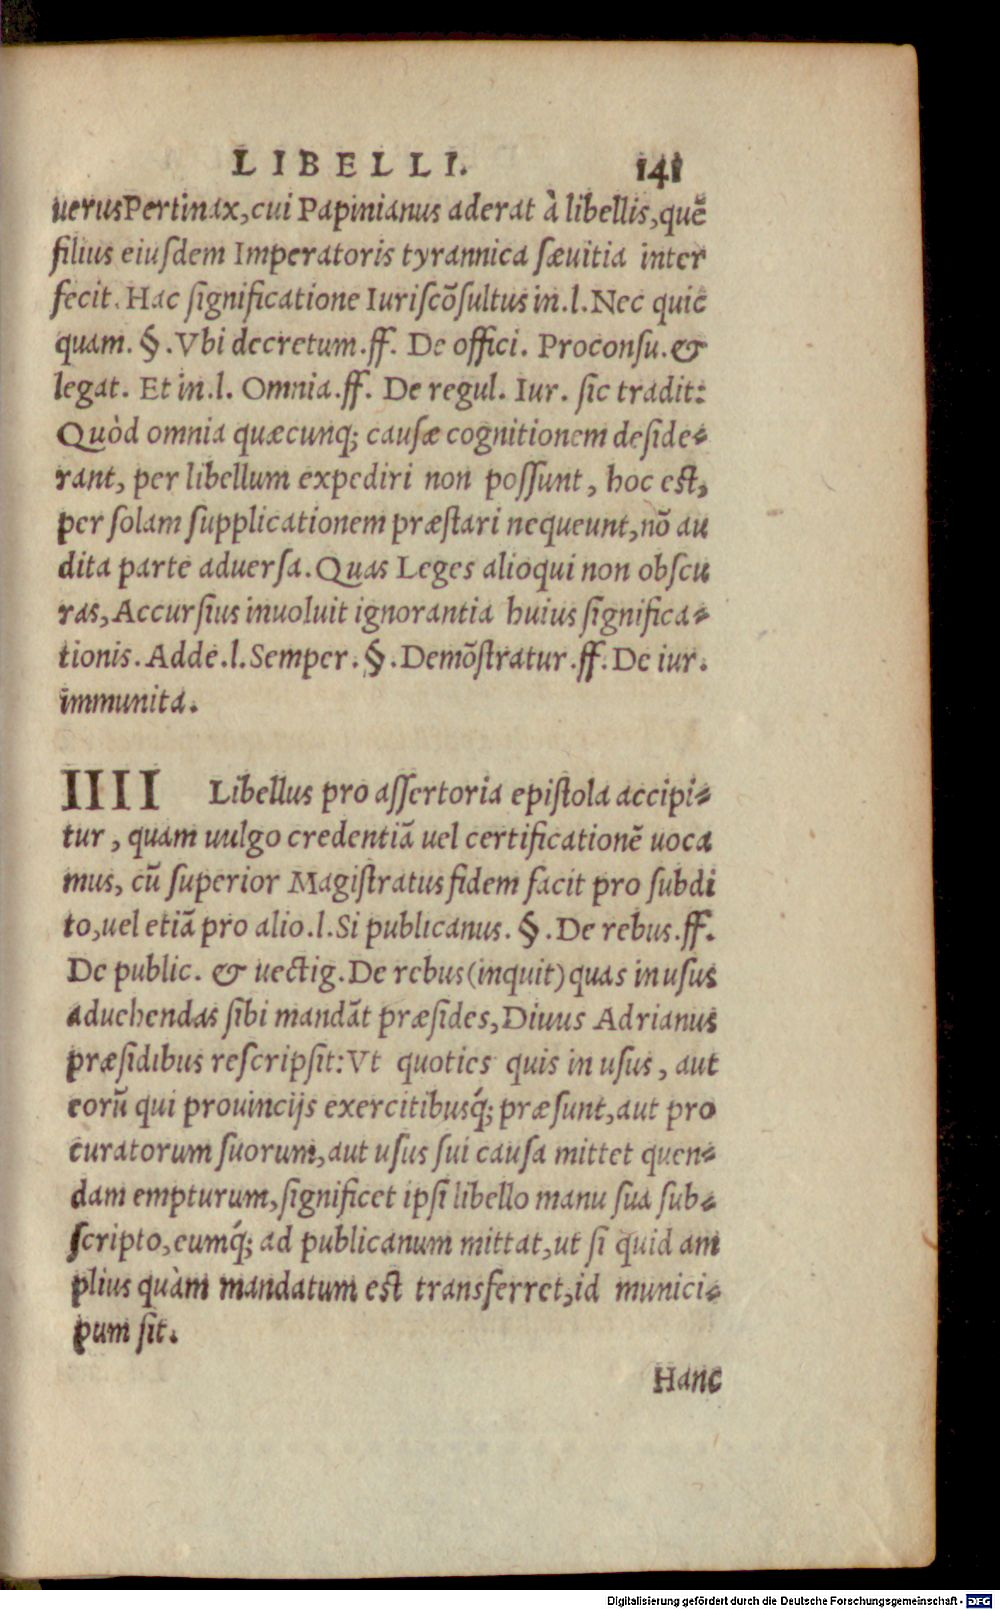 LIBELLI. 141
uerus Pertinax, cui Papinianus aderat à libellis, quẽ
filius eiuſdem Imperatoris tyrannica ſæuitia inter
fecit. Hac ſignificatione Iuriſcõſultus in .l. Nec quic
quam. §. Vbi decretum. ff. De offici. Proconſu. &
legat. Et in .l. Omnia. ff. De regul. Iur. ſic tradit:
Quòd omnia quæcunq; cauſæ cognitionem deſide-
rant, per libellum expediri non poſſunt, hoc eſt,
per ſolam ſupplicationem præſtari nequeunt, nõ au
dita parte aduerſa. Quas Leges alioqui non obſcu
ras, Accurſius inuoluit ignorantia huius ſignifica-
tionis. Adde .l. Semper. §. Demõſtratur. ff. De iur.
immunita.
IIII Libellus pro aſſertoria epiſtola accipi-
tur, quam uulgo credentiã uel certificationẽ uoca
mus, cũ ſuperior Magiſtratus fidem facit pro ſubdi
to, uel etiã pro alio .l. Si publicanus. §. De rebus. ff.
De public. & uectig. De rebus (inquit) quas in uſus
aduehendas ſibi mandãt præſides, Diuus Adrianus
præſidibus reſcripſit: Vt quoties quis in uſus, aut
eorũ qui prouincijs exercitibusq́; præſunt, aut pro
curatorum ſuorum, aut uſus ſui cauſa mittet quen-
dam empturum, ſignificet ipſi libello manu ſua ſub-
ſcripto, eumq́; ad publicanum mittat, ut ſi quid am
plius quàm mandatum eſt transferret, id munici-
pum ſit.
Hanc
Digitalisierung gefördert durch die Deutsche Forschungsgemeinschaft - DFG